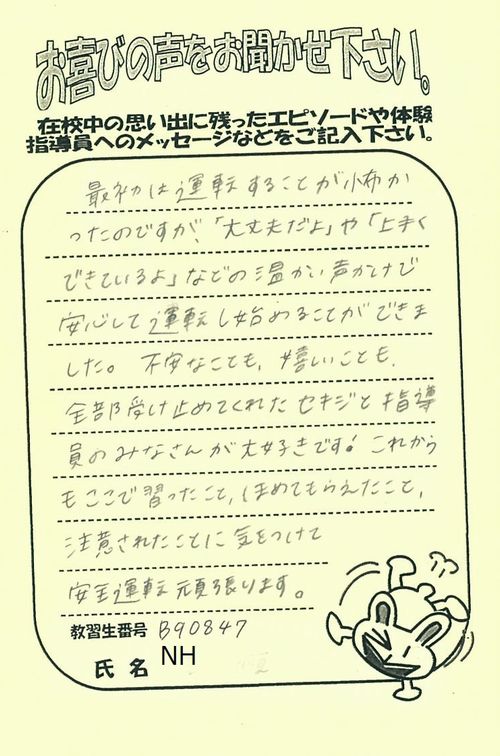 お喜びの声をお聞かせ下さい。
在校中の思い出に残ったエピソードや体験
指導員へのメッセージなどをご記入下さい。
最初は運転することが怖か
ったのですが、「大丈夫だよ」や「上手く
できているよ」などの温かい声かけで
安心して運転し始めることができま
した。不安なことも、嬉しいことも、
全部受け止めてくれたセキジと指導
員のみなさんが大好きです!これから
もここで習ったこと、ほめてもらえたこと、
注意されたことに気をつけて
安全運転頑張ります。
教習生番号 B90847
氏名 NH